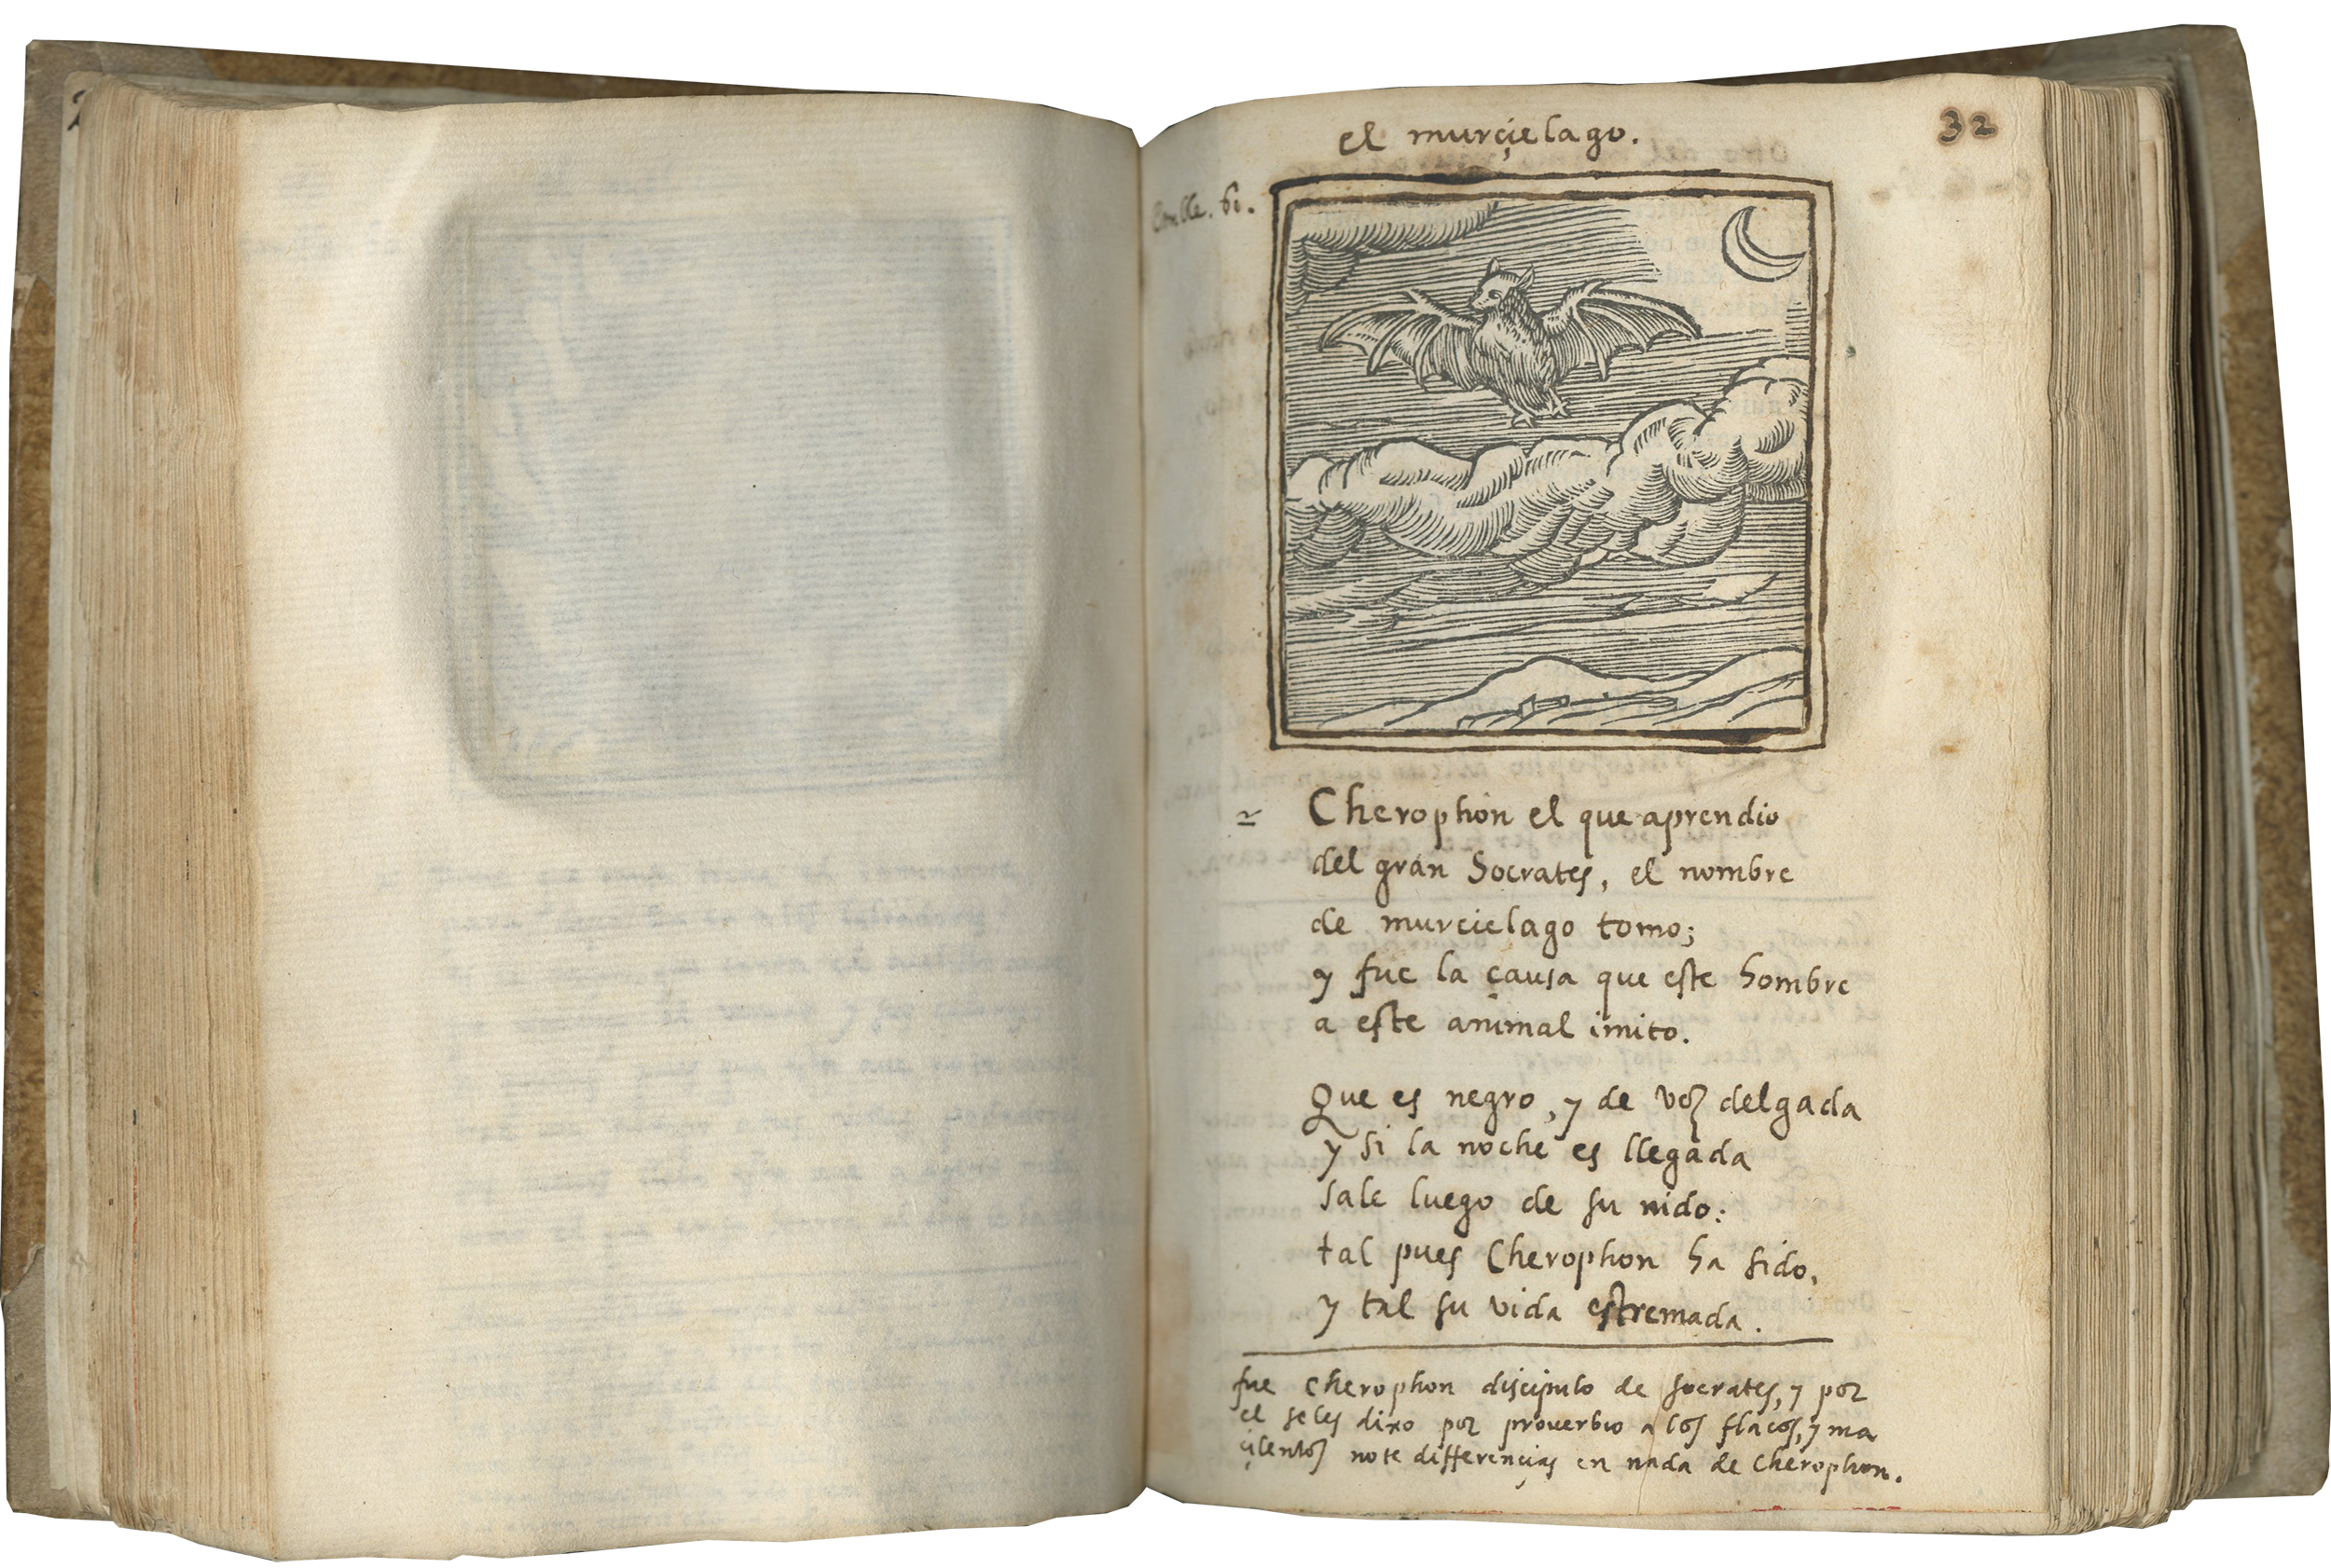 el murçielago.
32
Emble. 61.
Cherophon el que aprendio
del gran Socrates, el nombre
de murcielago tomo;
y fue la çausa que este hombre
a este animal imito.
Que es negro, y de voz delgada
y si la noche es llegada
sale luego de su nido:
tal pues Cherophon ha sido,
y tal su vida estremada.
fue Cherophon discipulo de Socrates, y por
el se les dixo por proverbio a los flacos, y ma
çilentos no te differençias en nada de Cherophon.